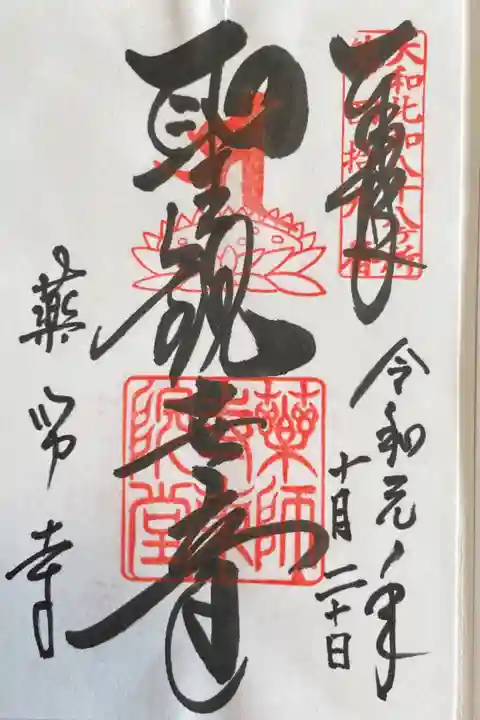 奉拝
大和北部八十八ヶ所
令和元年
十月二十日
聖観世音
薬師寺